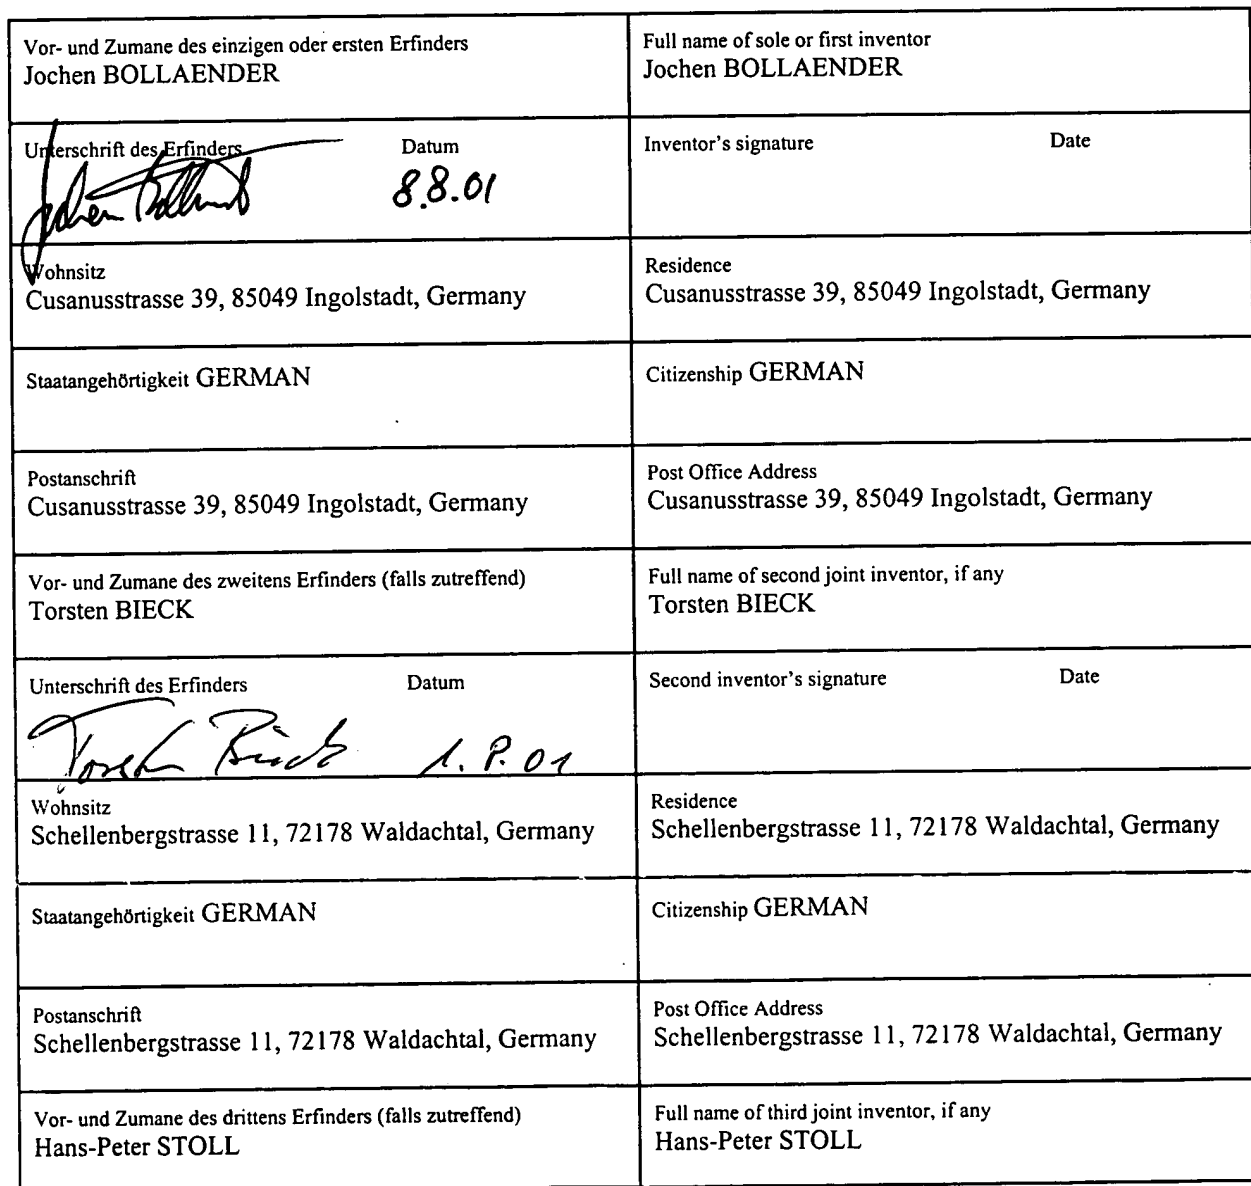 Vor- und Zumane des einzigen oder ersten Erfinders
Jochen BOLLAENDER
Full name of sole or first inventor
Jochen BOLLAENDER
Unterschrift des Erfinders Datum
8.8.01
Inventor's signature Date
Wohnsitz
Cusanusstrasse 39, 85049 Ingolstadt, Germany
Residence
Cusanusstrasse 39, 85049 Ingolstadt, Germany
Staatangehörtigkeit GERMAN
Citizenship GERMAN
Postanschrift
Cusanusstrasse 39, 85049 Ingolstadt, Germany
Post Office Address
Cusanusstrasse 39, 85049 Ingolstadt, Germany
Vor- und Zumane des zweitens Erfinders (falls zutreffend)
Torsten BIECK
Full name of second joint inventor, if any
Torsten BIECK
Unterschrift des Erfinders Datum
Torsten Bieck
Second inventor's signature Date
Wohnsitz
Schellenbergstrasse 11, 72178 Waldachtal, Germany
Residence
Schellenbergstrasse 11, 72178 Waldachtal, Germany
Staatangehörtigkeit GERMAN
Citizenship GERMAN
Postanschrift
Schellenbergstrasse 11, 72178 Waldachtal, Germany
Post Office Address
Schellenbergstrasse 11, 72178 Waldachtal, Germany
Vor- und Zumane des drittens Erfinders (falls zutreffend)
Hans-Peter STOLL
Full name of third joint inventor, if any
Hans-Peter STOLL